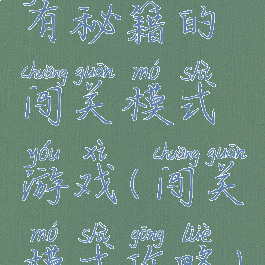 有秘籍的
chuǎng guān mó shì
闯关模式
yóu xì chuǎng guān
游戏(闯关
mó shì gōng lüè
模式攻略)